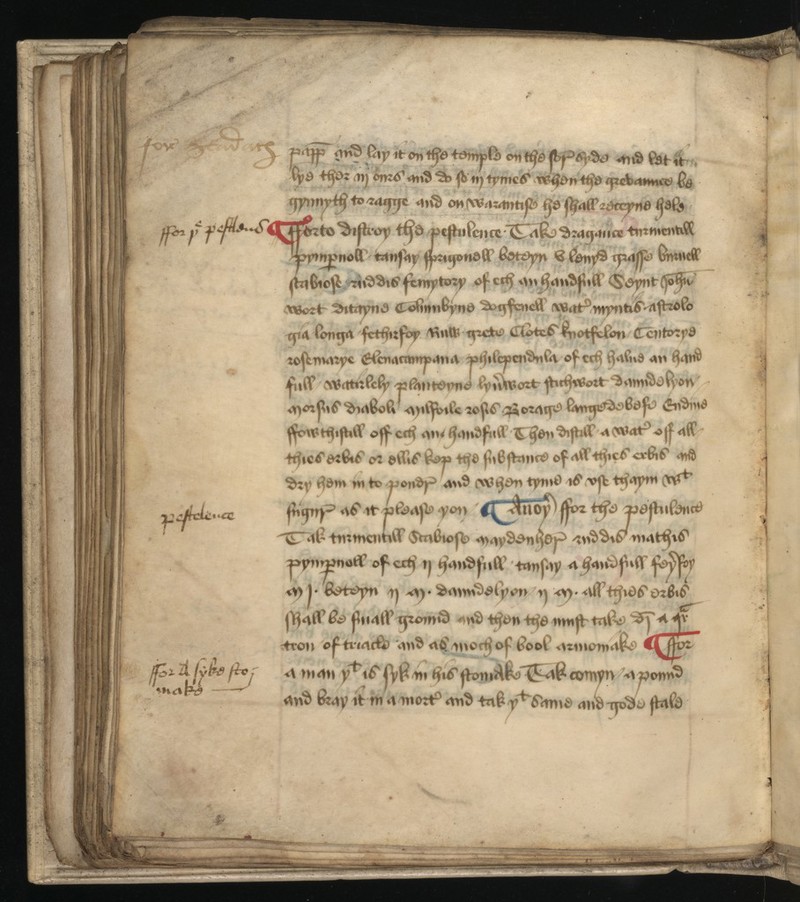 for hedach
papp and lay it on the temple on the sor syde and let it
lye ther iij ours and do so iij tymes when the grevaunce be
gynnyth to ragge and on warantise he shall receyne hele
ffor þe pestlens
fforto distroy the pestulence Take dragance turmentill
pympnoll tansay sprigonell beteyn v levyd grasse
scabiose ruddis femytory of ech an handfull Seynt John
wort ditayne Columbyne dogfenell watr myntis astrolo
gia longa fethirfoy Ruw grete Clotes knotfelon Centorye
rosemarye Elenacampana philependula of ech halue an hand
full watirlely planteyne lyuwort stichwort daundelyon
morsus diaboli milfoile rosis Borage langedebefe Endiue
sowthistill off ech an handfull Then distill a watr off all
thies erbis or ellis kep the substance of all thies erbis and
dry hem in to poudr and when tyme is vse thaym wt
sugur as it please you Anoyr ffor the pestulence
pestelence
Tak turmentill Scabiose maydenher ruddis mathis
pympnoll of ech ij handfull tansay a handfull feyrfoy
m j. beteyn ij m. daundelyon ij m. all thies erbis
shall be small ground and then the must take di a qr
tron of triacle and as moch of bool armonake ffor
ffor A syke sto
make
a man yt is syk in his stomake Tak comyn a pound
and bray it in a mortr and tak yt same and gode stale